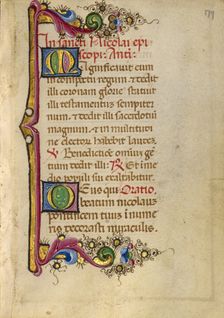 In sancti Nicolai epi
scopi. Anti.
Magnificavit eum
in conspectu regum et dedit
illi coronam glorie statuit
illi testamentum sempiter
num et dedit illi sacerdotium
magnum et in multitudi
ne electorum habebit laudem
Benedictione omnium gen
tium dedit illi R Et in me
dio populi sui exaltabitur
Deus qui Oratio.
beatum nicolaum
pontificem tuum innume
ris decorasti miraculis.